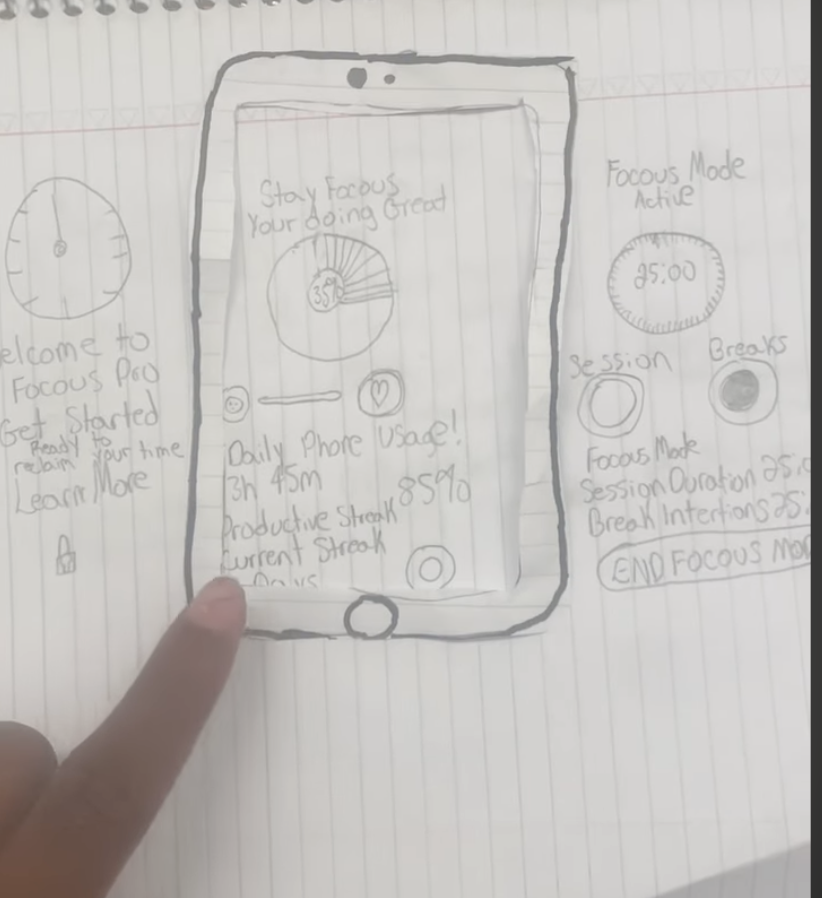 elcome to
Focous Pro
Get Started
Ready to
reclaim your time
Learn More
Stay Focous
Your doing Great
35%
Daily Phone Usage!
3h 45m
85%
Productive Streak
Current Streak
Days
Focous Mode
Active
25:00
Session
Breaks
Focous Mode
Session Duration 25:0
Break Intertions 25:
END FOCOUS MO